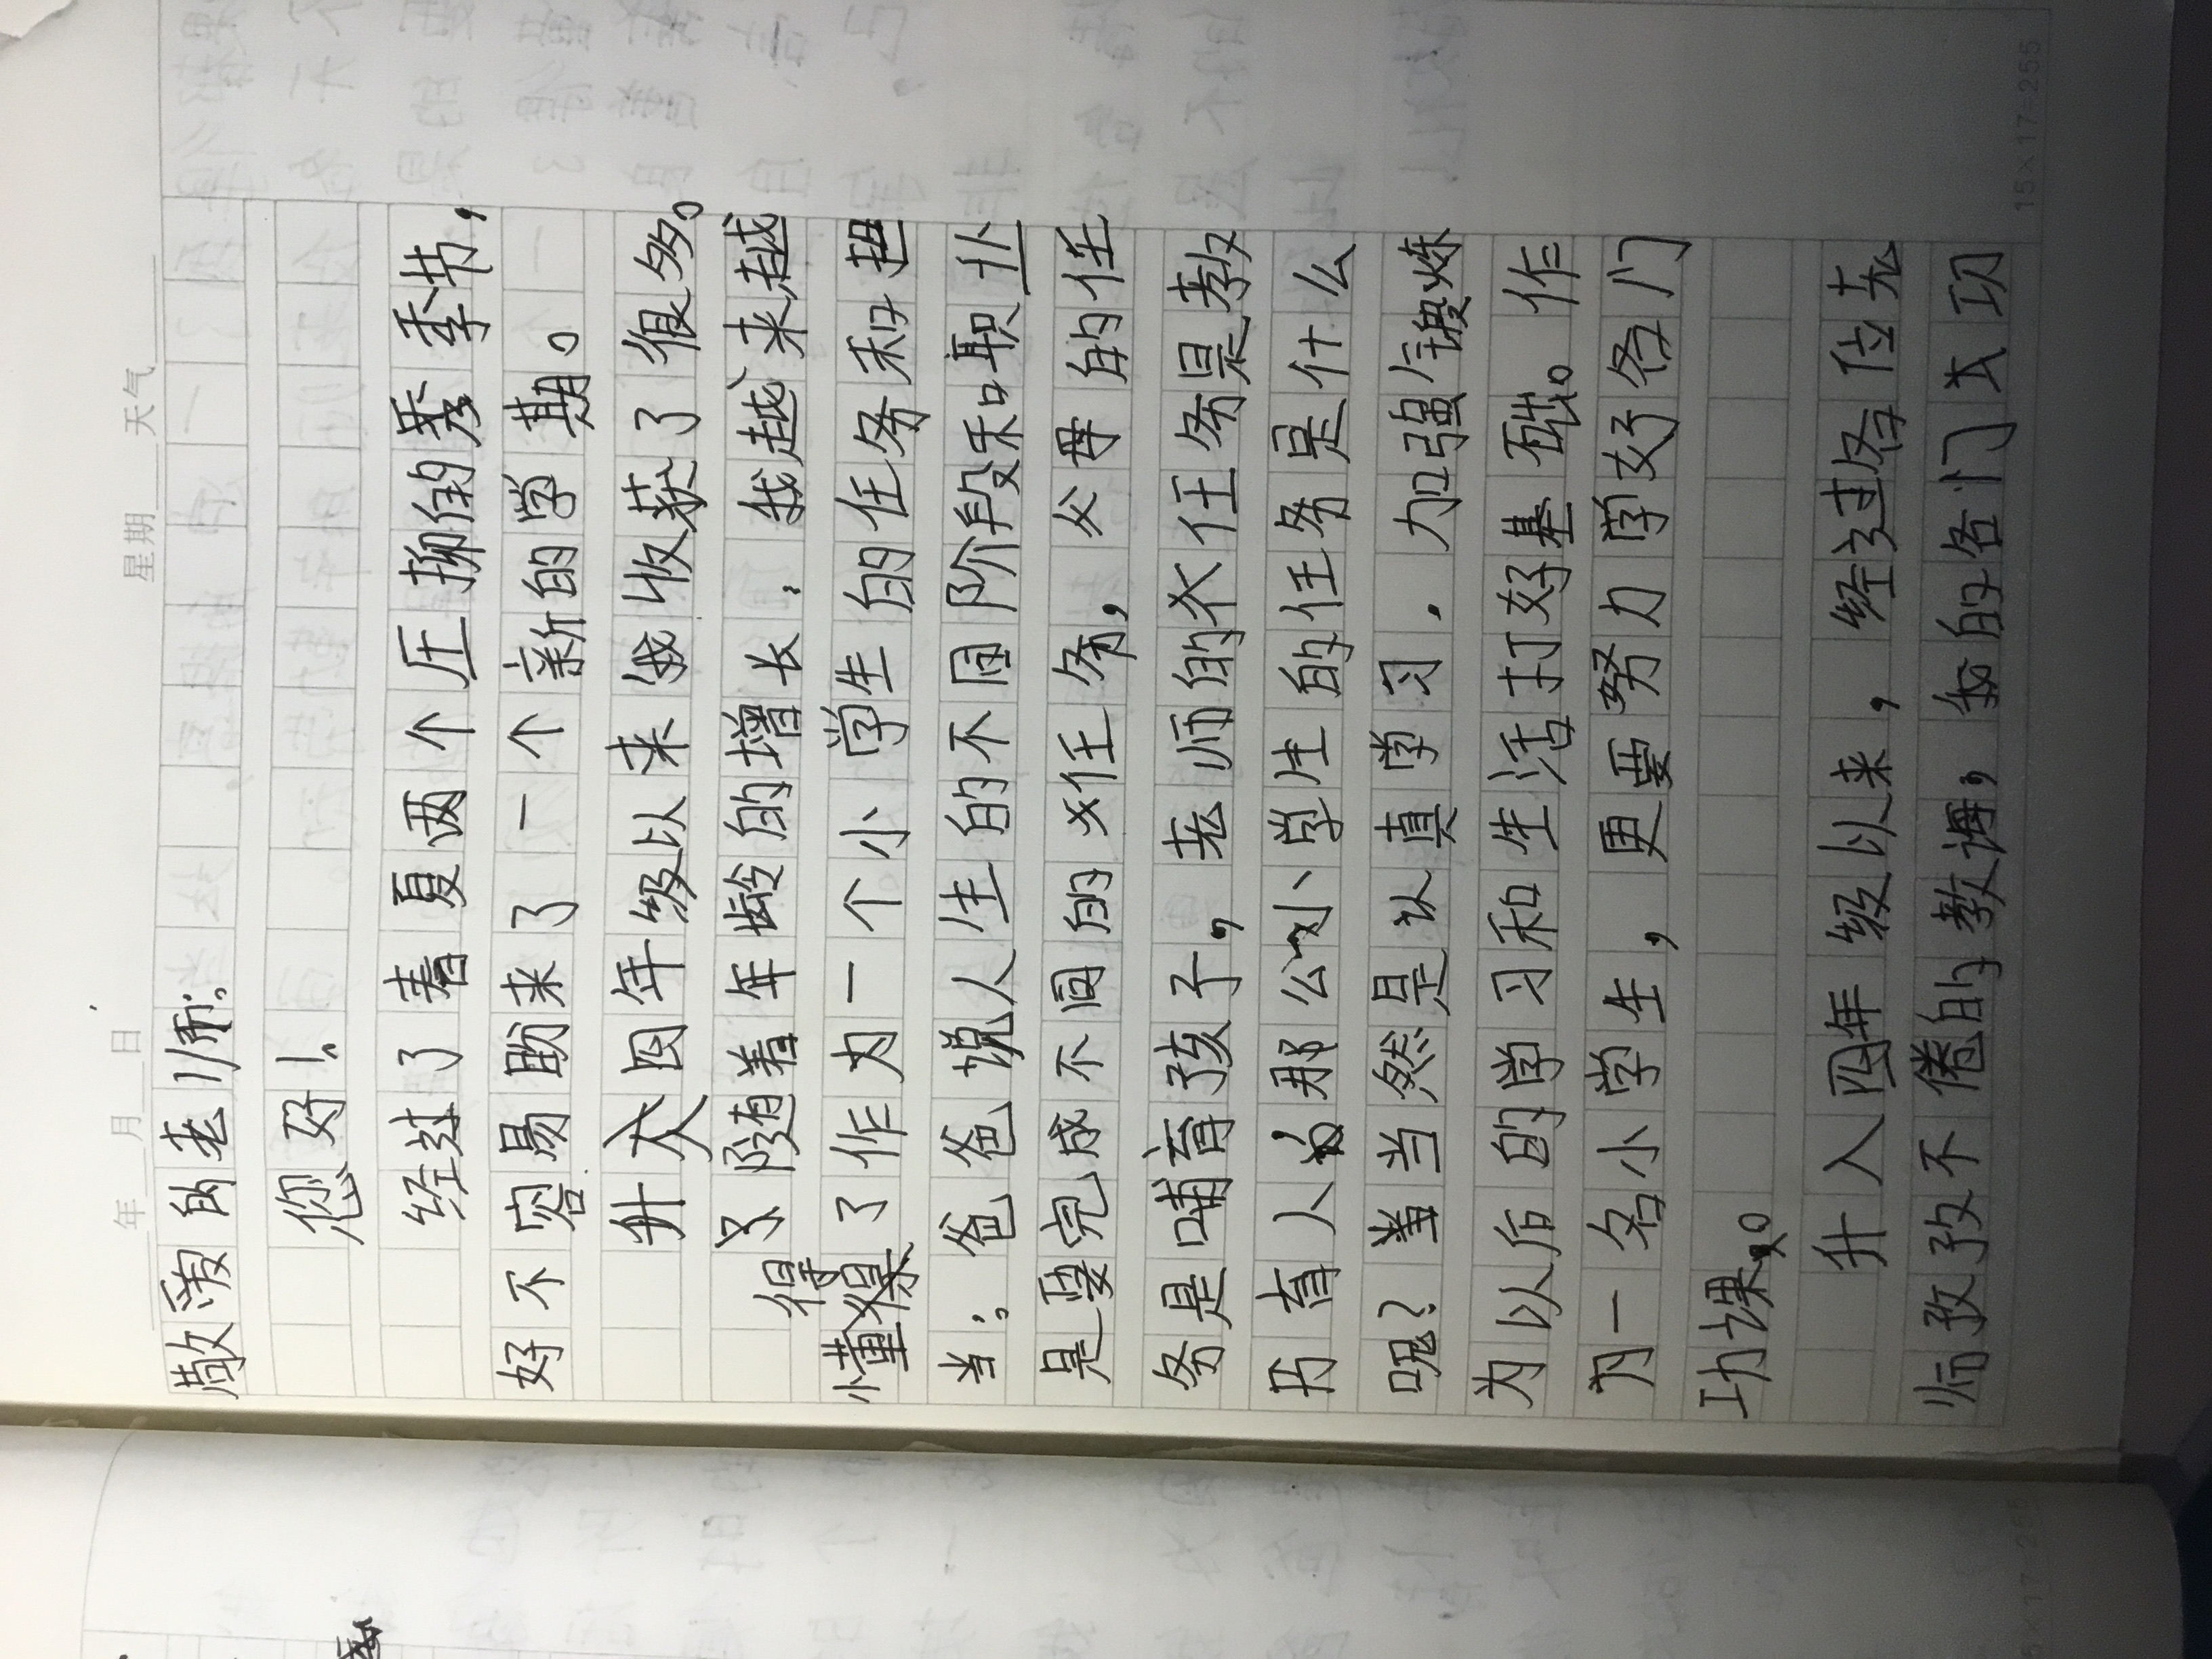 年 月 日 星期 天气
敬爱的老师。
您好！。
经过了春夏两个压抑的季节，
好不容易盼来了一个新的学期。
升入四年级以来我收获了很多。
又随着年龄的增长，我越来越
得
懂了作为一个小学生的任务和担
当。爸爸说人生的不同阶段和职业
是要完成不同的任务，父母的任
务是哺育孩子，老师的任务是教
书育人那小学生的任务是什么
呢？当然是认真学习，加强锻炼
为以后的学习和生活打好基础。作
为一名小学生，更要努力学好各门
功课。
升入四年级以来，经过各位老
师孜孜不倦的教诲，我的各门功
15×17=255